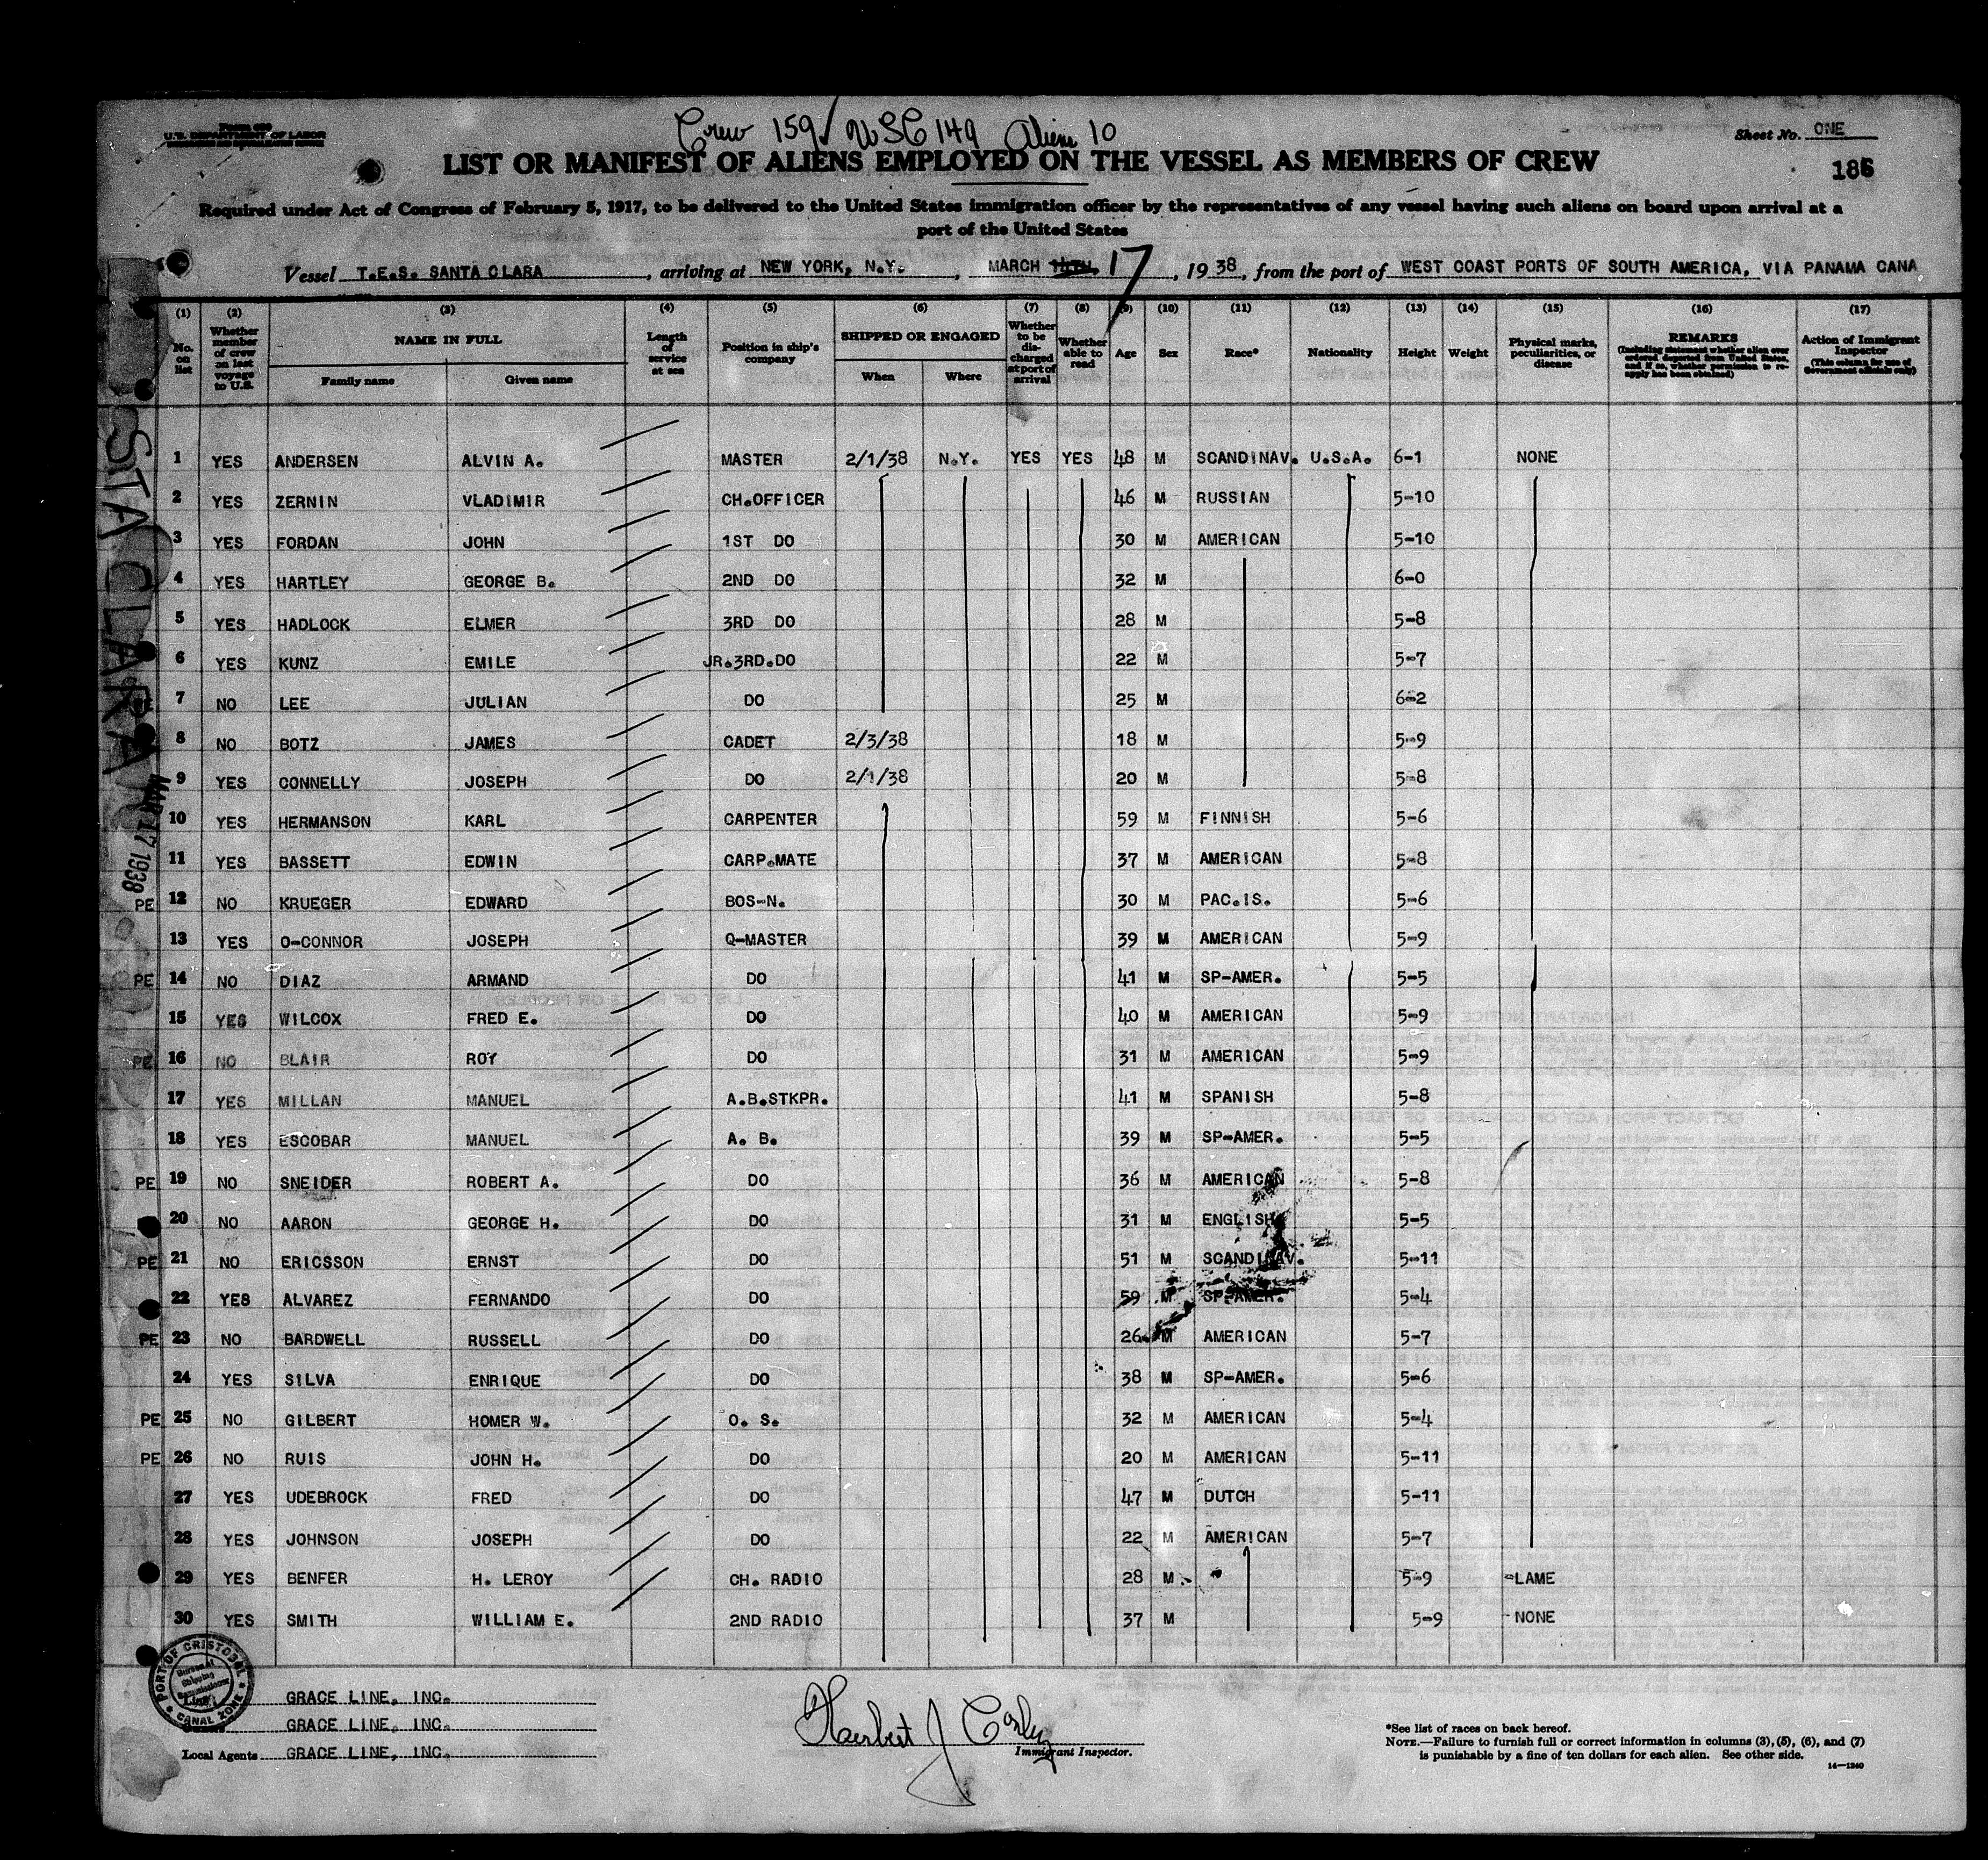 Crew 159 USC 149 Aliens 10
U.S. DEPARTMENT OF LABOR
Sheet No. ONE
LIST OR MANIFEST OF ALIENS EMPLOYED ON THE VESSEL AS MEMBERS OF CREW
186
Required under Act of Congress of February 5, 1917, to be delivered to the United States immigration officer by the representatives of any vessel having such aliens on board upon arrival at a
port of the United States
Vessel T.E.S. SANTA CLARA, arriving at NEW YORK, N.Y., MARCH 17, 1938, from the port of WEST COAST PORTS OF SOUTH AMERICA, VIA PANAMA CANA
(1) (2) (3) (4) (5) (6) (7) (8) (9) (10) (11) (12) (13) (14) (15) (16) (17)
No. on list
Whether member of crew on last voyage to U.S.
NAME IN FULL
Family name
Given name
Length of service at sea
Position in ship's company
SHIPPED OR ENGAGED
When
Where
Whether to be discharged at port of arrival
Whether able to read
Age
Sex
Race*
Nationality
Height
Weight
Physical marks, peculiarities, or disease
REMARKS
(Including statement whether alien ever ordered deported from United States, and if so, whether permission to reapply has been obtained)
Action of Immigrant Inspector
(This column for use of Government officials only)
1 YES ANDERSEN ALVIN A. MASTER 2/1/38 N.Y. YES YES 48 M SCANDINAV. U.S.A. 6-1 NONE
2 YES ZERNIN VLADIMIR CH.OFFICER 46 M RUSSIAN 5-10
3 YES FORDAN JOHN 1ST DO 30 M AMERICAN 5-10
4 YES HARTLEY GEORGE B. 2ND DO 32 M 6-0
5 YES HADLOCK ELMER 3RD DO 28 M 5-8
6 YES KUNZ EMILE JR.3RD.DO 22 M 5-7
PE 7 NO LEE JULIAN DO 25 M 6-2
8 NO BOTZ JAMES CADET 2/3/38 18 M 5-9
9 YES CONNELLY JOSEPH DO 2/1/38 20 M 5-8
10 YES HERMANSON KARL CARPENTER 59 M FINNISH 5-6
11 YES BASSETT EDWIN CARP.MATE 37 M AMERICAN 5-8
PE 12 NO KRUEGER EDWARD BOS-N. 30 M PAC.IS. 5-6
13 YES O-CONNOR JOSEPH Q-MASTER 39 M AMERICAN 5-9
PE 14 NO DIAZ ARMAND DO 41 M SP-AMER. 5-5
15 YES WILCOX FRED E. DO 40 M AMERICAN 5-9
PE 16 NO BLAIR ROY DO 31 M AMERICAN 5-9
17 YES MILLAN MANUEL A.B.STKPR. 41 M SPANISH 5-8
18 YES ESCOBAR MANUEL A. B. 39 M SP-AMER. 5-5
PE 19 NO SNEIDER ROBERT A. DO 36 M AMERICAN 5-8
20 NO AARON GEORGE H. DO 31 M ENGLISH 5-5
PE 21 NO ERICSSON ERNST DO 51 M SCANDINAV. 5-11
22 YES ALVAREZ FERNANDO DO 59 M SP-AMER. 5-4
PE 23 NO BARDWELL RUSSELL DO 26 M AMERICAN 5-7
24 YES SILVA ENRIQUE DO 38 M SP-AMER. 5-6
PE 25 NO GILBERT HOMER W. O. S. 32 M AMERICAN 5-4
PE 26 NO RUIS JOHN H. DO 20 M AMERICAN 5-11
27 YES UDEBROCK FRED DO 47 M DUTCH 5-11
28 YES JOHNSON JOSEPH DO 22 M AMERICAN 5-7
29 YES BENFER H. LEROY CH. RADIO 28 M 5-9 -LAME
30 YES SMITH WILLIAM E. 2ND RADIO 37 M 5-9 NONE
STA CLARA
MAR 17 1938
PORT OF CRISTOBAL
CANAL ZONE
GRACE LINE, INC.
GRACE LINE, INC.
Local Agents GRACE LINE, INC.
Herbert J
Immigrant Inspector.
*See list of races on back hereof.
NOTE.—Failure to furnish full or correct information in columns (3), (5), (6), and (7)
is punishable by a fine of ten dollars for each alien. See other side.
14—1240